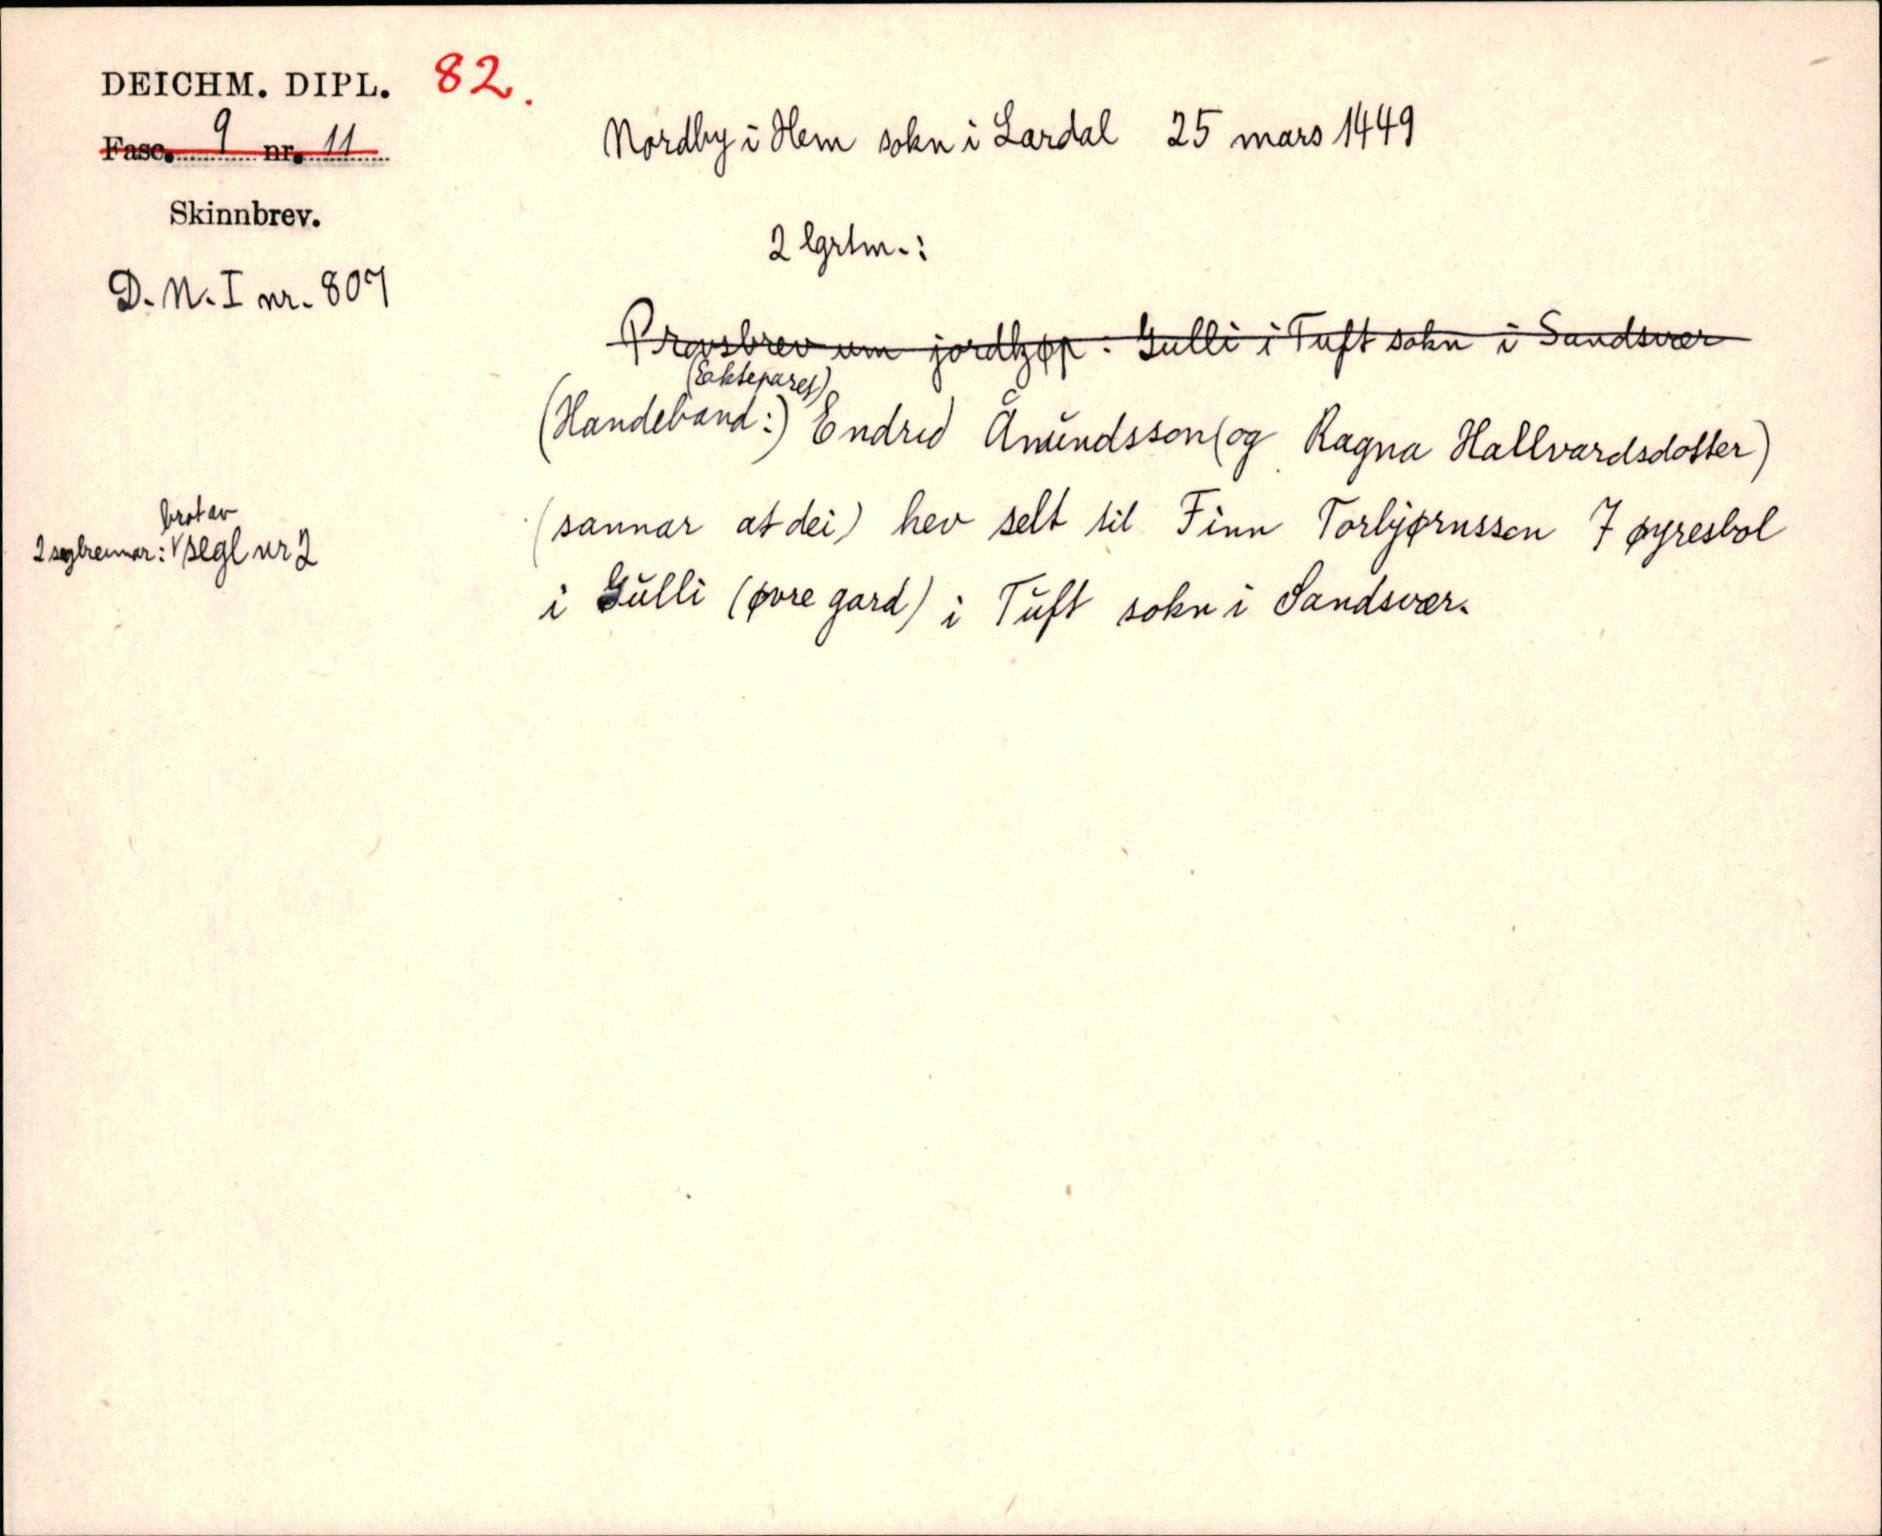 DEICHM. DIPL. 82.
Fasc. 9 nr. 11
Skinnbrev.
D. N. I nr. 807
Nordby i Hem sokn i Lardal 25 mars 1449
2 lgrtm.:
Provsbrev um jordkjøp. Gulli i Tuft sokn i Sandsvær
(Ekteparet)
(Handeband:) Endrid Ånundsson (og Ragna Hallvardsdotter)
(sannar at dei) hev selt til Finn Torbjørnsson 7 øyresbol
i Gulli (øvre gard) i Tuft sokn i Sandsvær.
brot av
2 seglreimar: segl nr 2